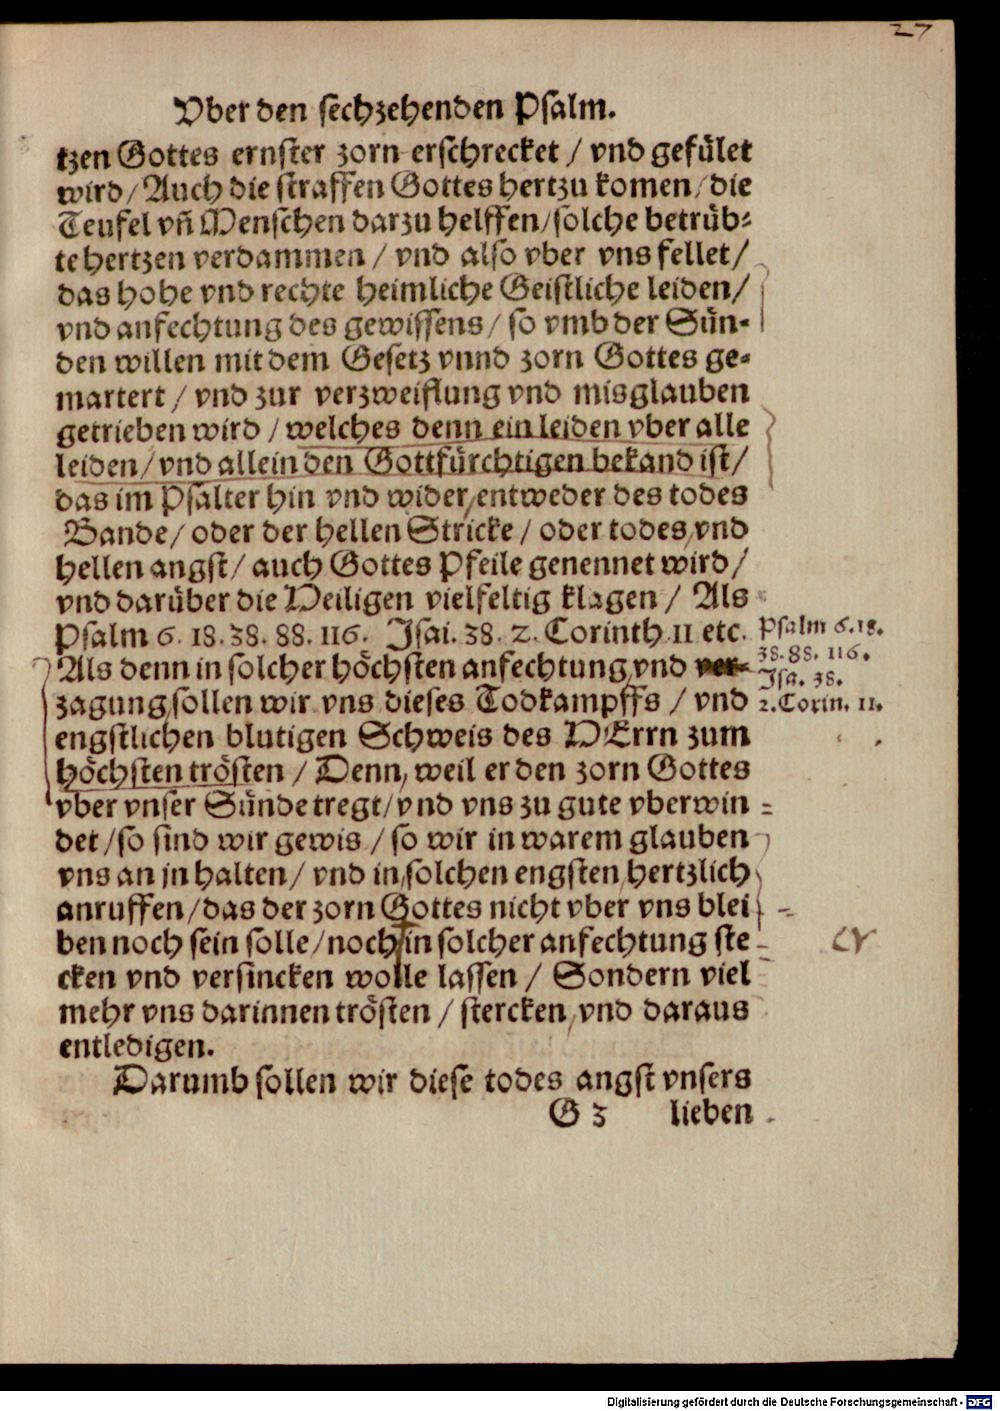 27
Vber den sechzehenden Psalm.
tzen Gottes ernster zorn erschrecket / vnd gefület
wird / Auch die straffen Gottes hertzu komen / die
Teufel vñ Menschen darzu helffen / solche betrüb⸗
te hertzen verdammen / vnd also vber vns fellet /
das hohe vnd rechte heimliche Geistliche leiden /
vnd anfechtung des gewissens / so vmb der Sün⸗
den willen mit dem Gesetz vnnd zorn Gottes ge⸗
martert / vnd zur verzweiflung vnd misglauben
getrieben wird / welches denn ein leiden vber alle
leiden / vnd allein den Gottfürchtigen bekand ist /
das im Psalter hin vnd wider / entweder des todes
Bande / oder der hellen Stricke / oder todes vnd
hellen angst / auch Gottes Pfeile genennet wird /
vnd darüber die Heiligen vielfeltig klagen / Als
Psalm 6. 18. 38. 88. 116. Jsai. 38. 2. Corinth. 11 etc.
Psalm 6. 18.
38. 88. 116.
Jsa. 38.
2. Corin. 11.
Als denn in solcher höchsten anfechtung vnd ver⸗
zagung sollen wir vns dieses Todkampffs / vnd
engstlichen blutigen Schweis des HErrn zum
höchsten trösten / Denn, weil er den zorn Gottes
vber vnser Sünde tregt / vnd vns zu gute vberwin
det / so sind wir gewis / so wir in warem glauben
vns an jn halten / vnd in solchen engsten hertzlich
anruffen / das der zorn Gottes nicht vber vns blei
ben noch sein solle / noch in solcher anfechtung ste
cken vnd versincken wolle lassen / Sondern viel
mehr vns darinnen trösten / stercken, vnd daraus
entledigen.
Darumb sollen wir diese todes angst vnsers
G 3 lieben
Digitalisierung gefördert durch die Deutsche Forschungsgemeinschaft - DFG